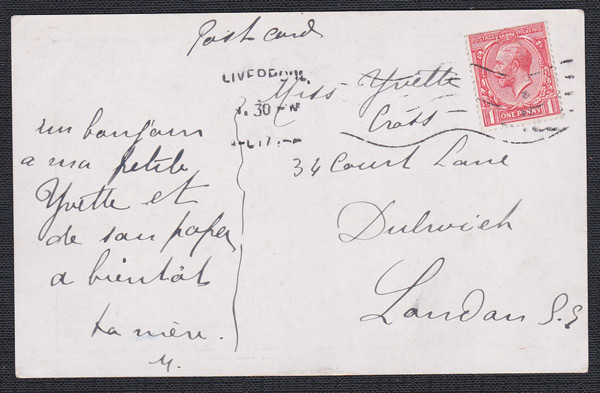 Post card
LIVERPOOL
.30 PM
Miss Yvette
Cross
34 Court Lane
Dulwich
London S.E
un bonjour
a ma petite
Yvette et
de son papa
a bientôt
ta mère.
M.
ONE PENNY
1 1